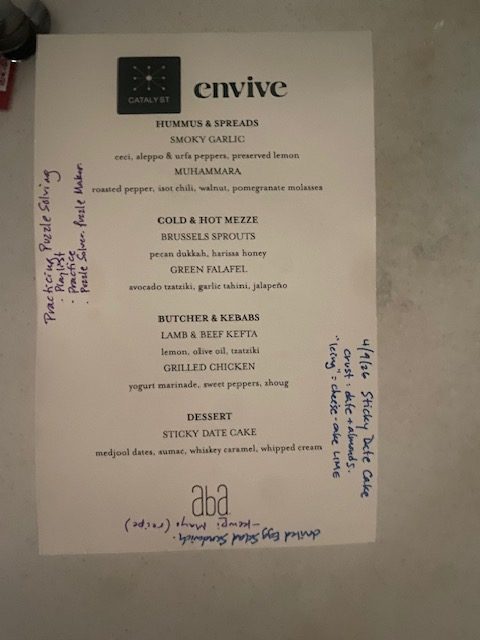 CATALYST
envive
HUMMUS & SPREADS
SMOKY GARLIC
ceci, aleppo & urfa peppers, preserved lemon
MUHAMMARA
roasted pepper, isot chili, walnut, pomegranate molassea
COLD & HOT MEZZE
BRUSSELS SPROUTS
pecan dukkah, harissa honey
GREEN FALAFEL
avocado tzatziki, garlic tahini, jalapeño
BUTCHER & KEBABS
LAMB & BEEF KEFTA
lemon, olive oil, tzatziki
GRILLED CHICKEN
yogurt marinade, sweet peppers, zhoug
DESSERT
STICKY DATE CAKE
medjool dates, sumac, whiskey caramel, whipped cream
aba
Practicing Puzzle Solving
· Playlist
· Practice
· Puzzle Solver, Puzzle Maker.
4/9/26 Sticky Date Cake
crust: date + almonds.
"icing" = cheese-cake LIME
Deviled Egg Salad Sandwich.
- Kewpi Mayo (recipe)